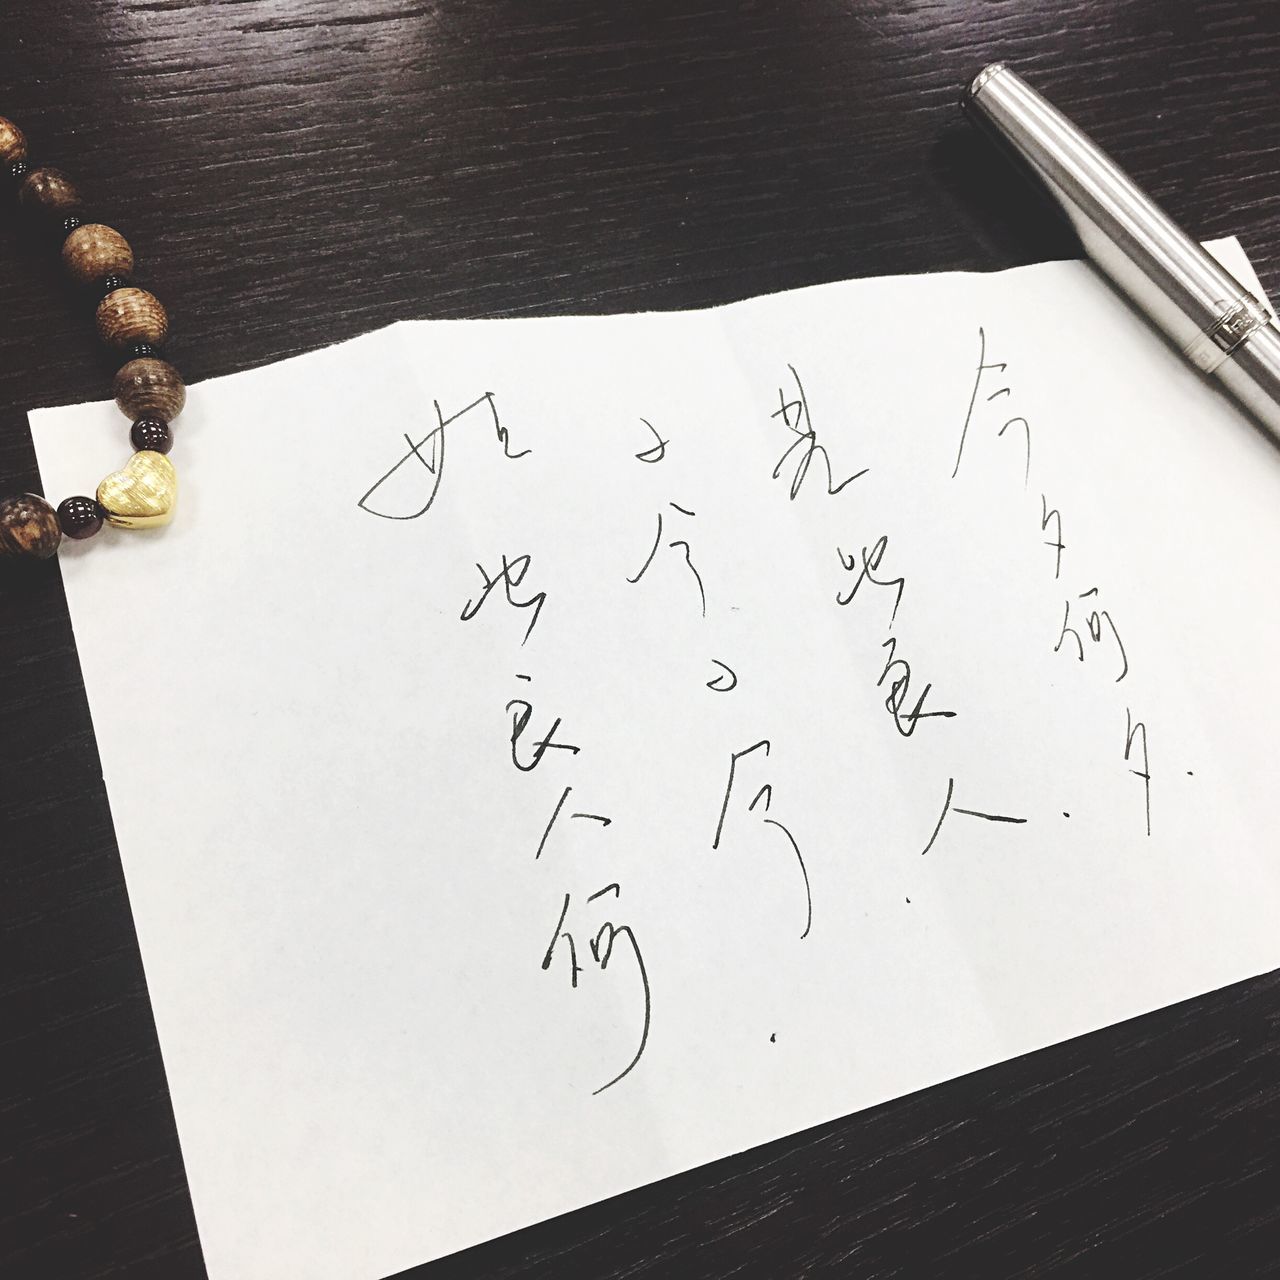 今夕何夕.
見此良人.
子兮子兮.
如此良人何